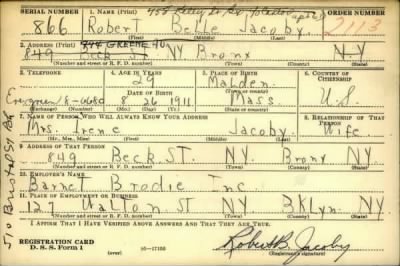 SERIAL NUMBER 1. NAME (Print) ORDER NUMBER
866 Robert Belle Jacoby 2113
(First) (Middle) (Last)
2. ADDRESS (Print)
849 Beck St NY Bronx N-Y
(Number and street or R. F. D. number) (Town) (County) (State)
3. TELEPHONE 4. AGE IN YEARS 5. PLACE OF BIRTH 6. COUNTRY OF CITIZENSHIP
29 Malden
DATE OF BIRTH (Town or county)
Evergreen 8-0680 8 26 1911 Mass. U.S.
(Exchange) (Number) (Mo.) (Day) (Yr.) (State or country)
7. NAME OF PERSON WHO WILL ALWAYS KNOW YOUR ADDRESS 8. RELATIONSHIP OF THAT PERSON
Mrs. Irene Jacoby Wife
(Mr., Mrs., Miss) (First) (Middle) (Last)
9. ADDRESS OF THAT PERSON
849 Beck ST. NY Bronx NY
(Number and street or R. F. D. number) (Town) (County) (State)
10. EMPLOYER'S NAME
Barnet Brodie Inc.
11. PLACE OF EMPLOYMENT OR BUSINESS
127 Walton ST BKLyn. NY
(Number and street or R. F. D. number) (Town) (County) (State)
I AFFIRM THAT I HAVE VERIFIED ABOVE ANSWERS AND THAT THEY ARE TRUE.
REGISTRATION CARD
D. S. S. Form 1 (over) 16-17105 Robert B. Jacoby